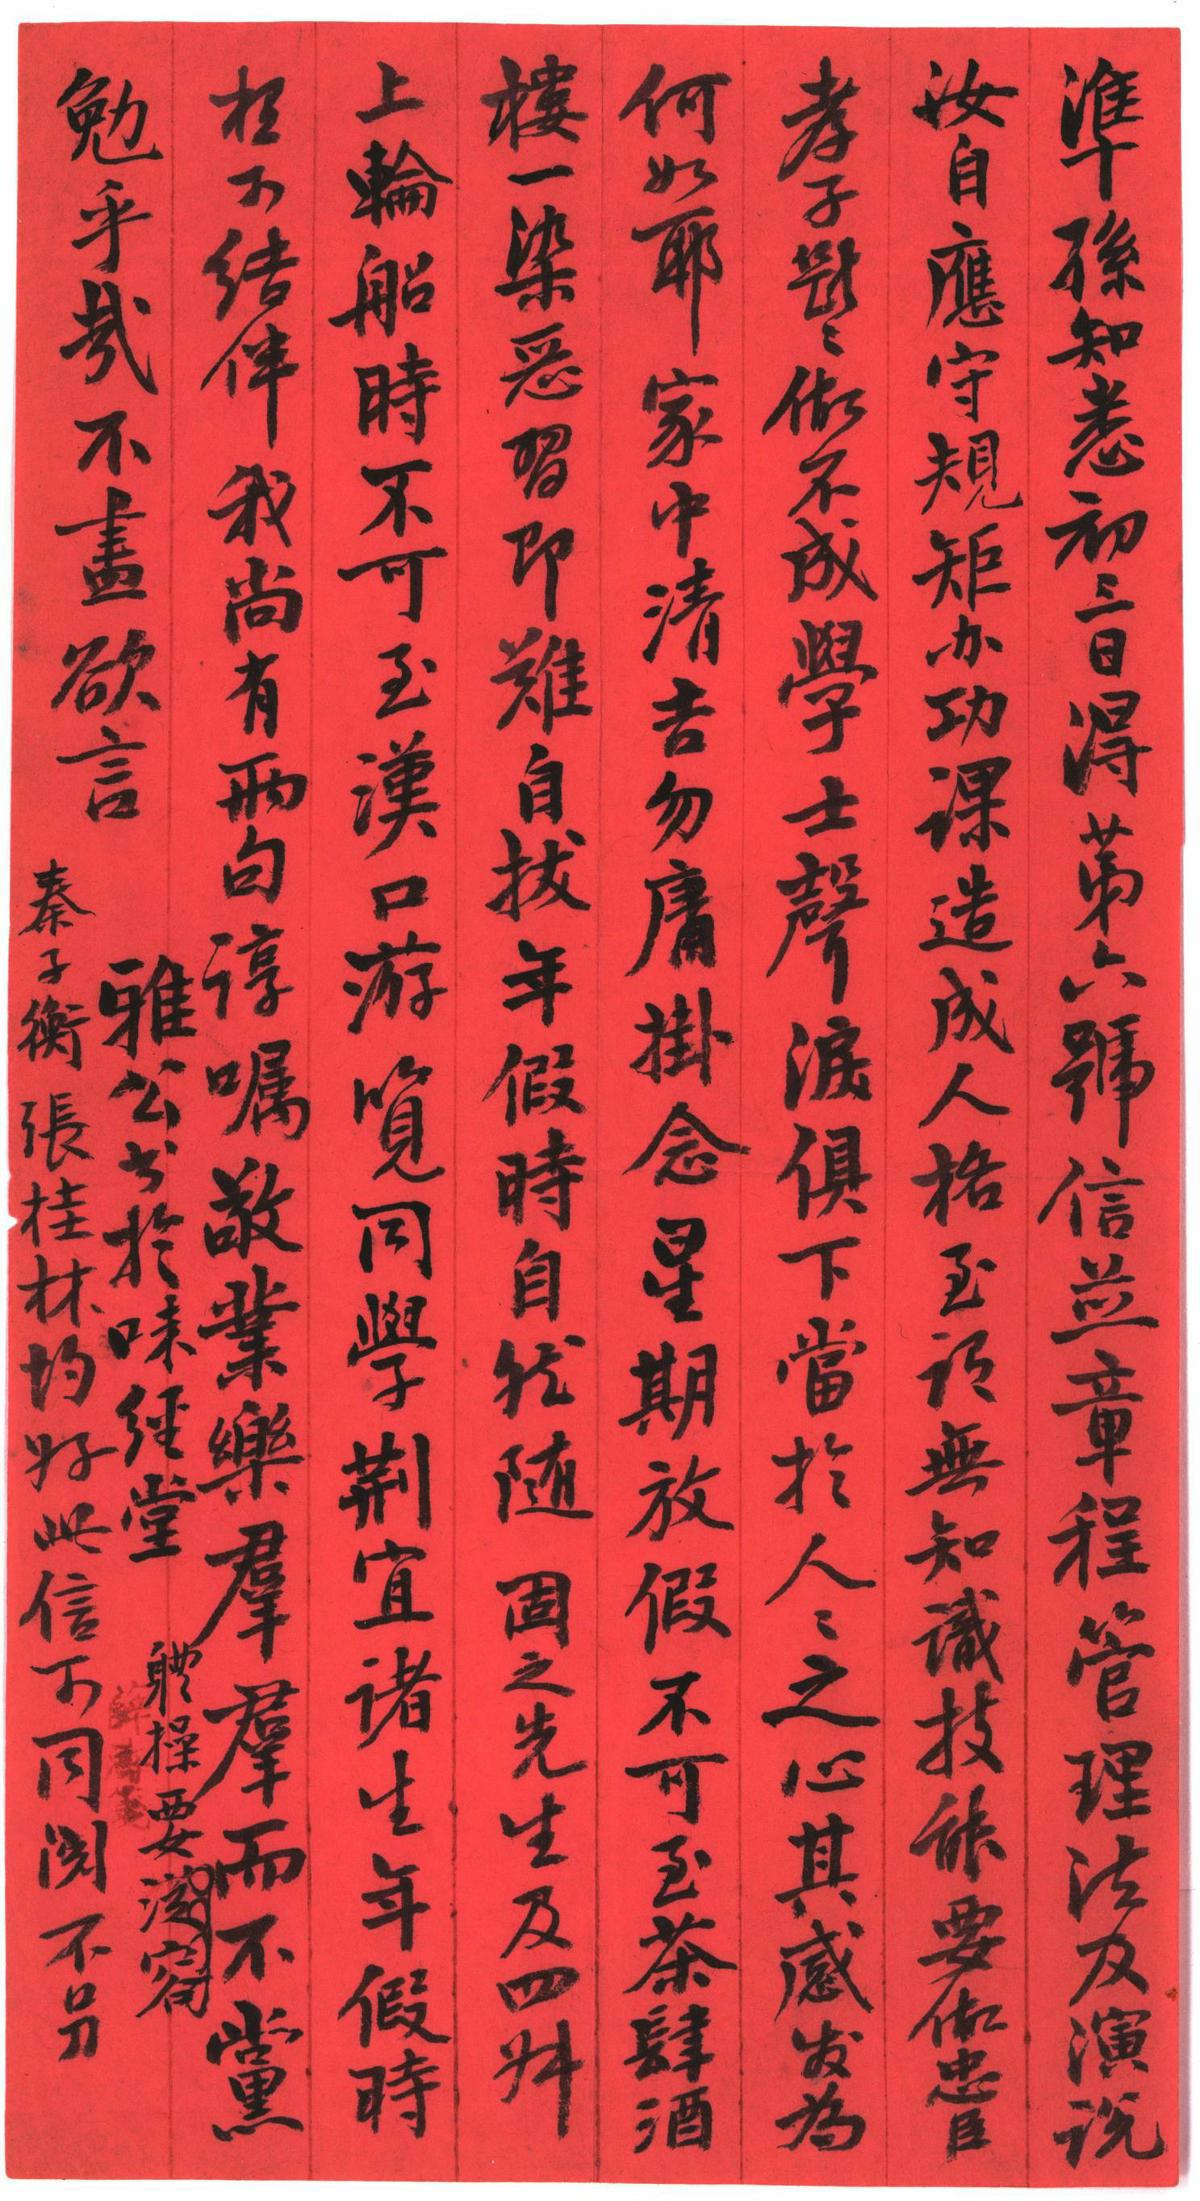 準孫知悉初三日得第六號信並章程管理法及演説
汝自應守規矩办功课造成人格至谓無知識技能要做忠臣
孝子斷〻做不成學士聲淚俱下當於人〻之心其感发為
何如耶家中清吉勿庸掛念星期放假不可至茶肆酒
樓一染惡習即難自拔年假時自然随固之先生及四舛
上輪船時不可至漢口游覽同學荆宜諸生年假時
相不结伴我尚有兩句谆嘱敬業樂羣羣而不黨
勉乎哉不盡欲言
雅公书於味经堂
體操要從容
秦子衡張桂林均好此信可同閲不另